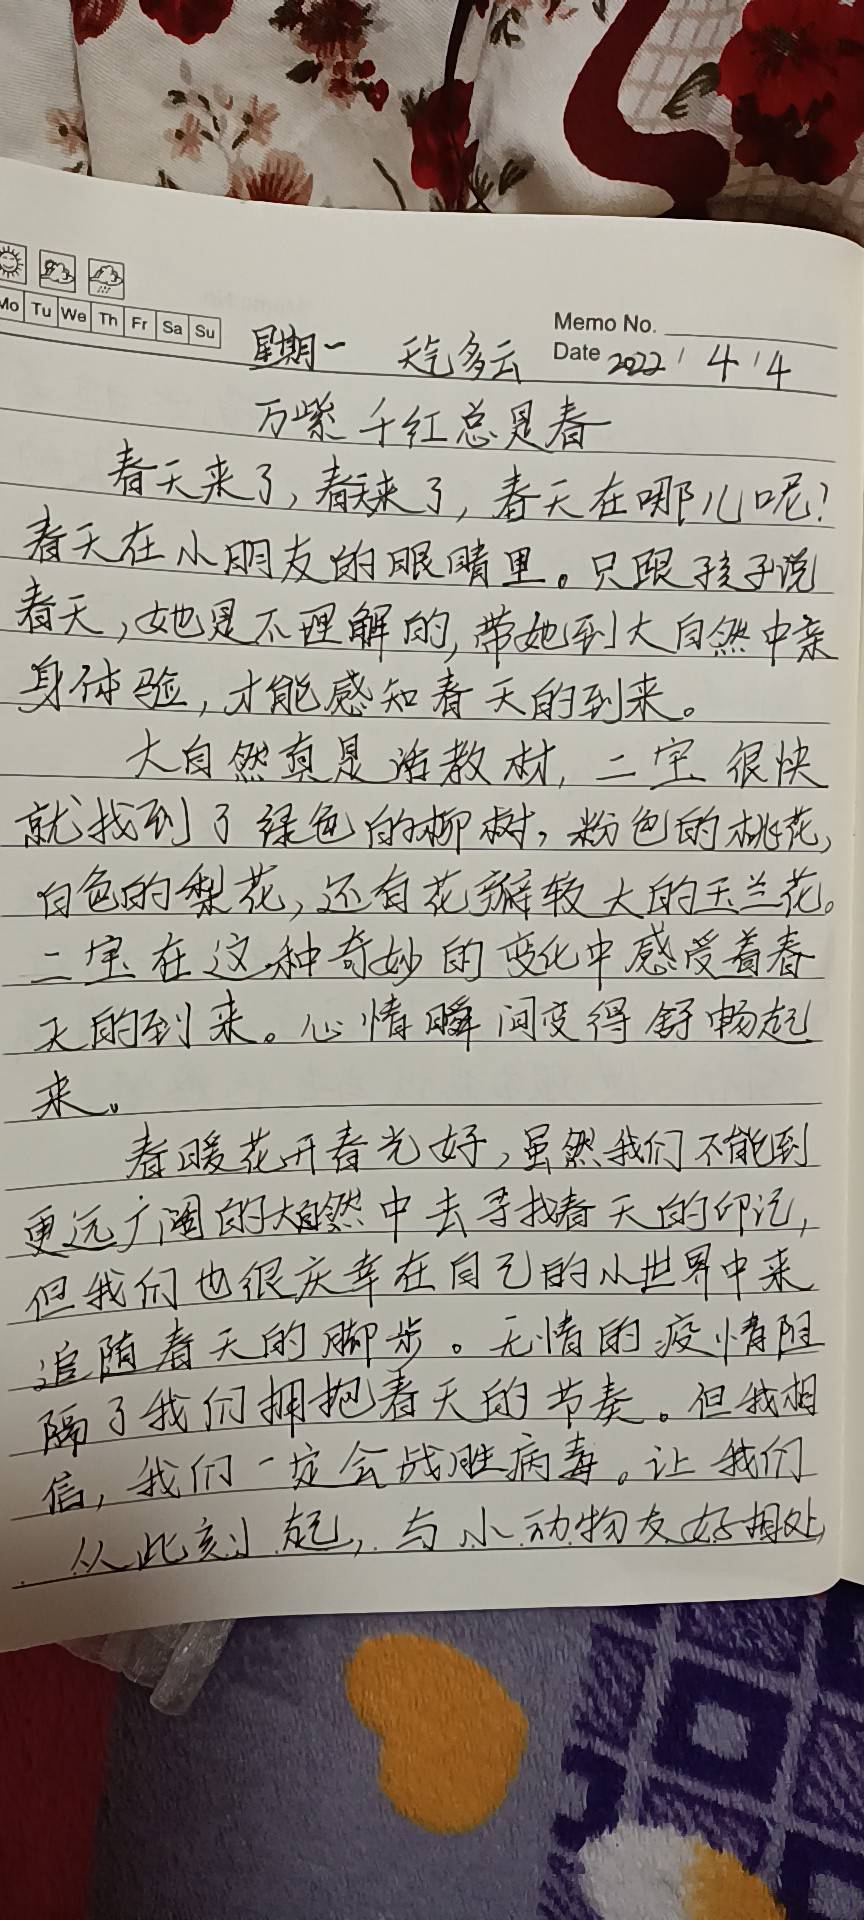 Mo Tu We Th Fr Sa Su
Memo No.
星期一 天气多云 Date 2022/4/4
万紫千红总是春
春天来了,春天来了,春天在哪儿呢?
春天在小朋友的眼睛里。只跟孩子说
春天,她是不理解的,带她到大自然中亲
身体验,才能感知春天的到来。
大自然真是活教材,二宝很快
就找到了绿色的柳树,粉色的桃花,
白色的梨花,还有花瓣较大的玉兰花。
二宝在这种奇妙的变化中感受着春
天的到来。心情瞬间变得舒畅起
来。
春暖花开春光好,虽然我们不能到
更远广阔的大自然中去寻找春天的印记,
但我们也很庆幸在自己的小世界中来
追随春天的脚步。无情的疫情阻
隔了我们拥抱春天的节奏。但我相
信,我们一定会战胜病毒。让我们
从此刻起,与小动物友好相处,